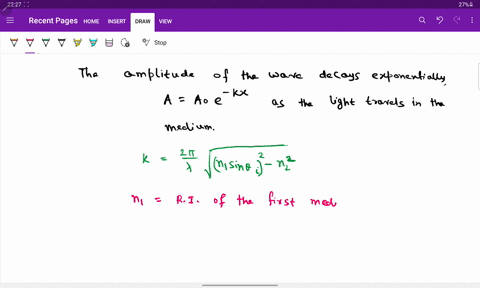 22:27
27%
Recent Pages HOME INSERT DRAW VIEW
Stop
The amplitude of the wave decays exponentially,
A = A0 e^-kx as the light travels in the
medium.
k = 2π/λ √((n1 sinθi)² - n2²)
n1 = R.I. of the first med